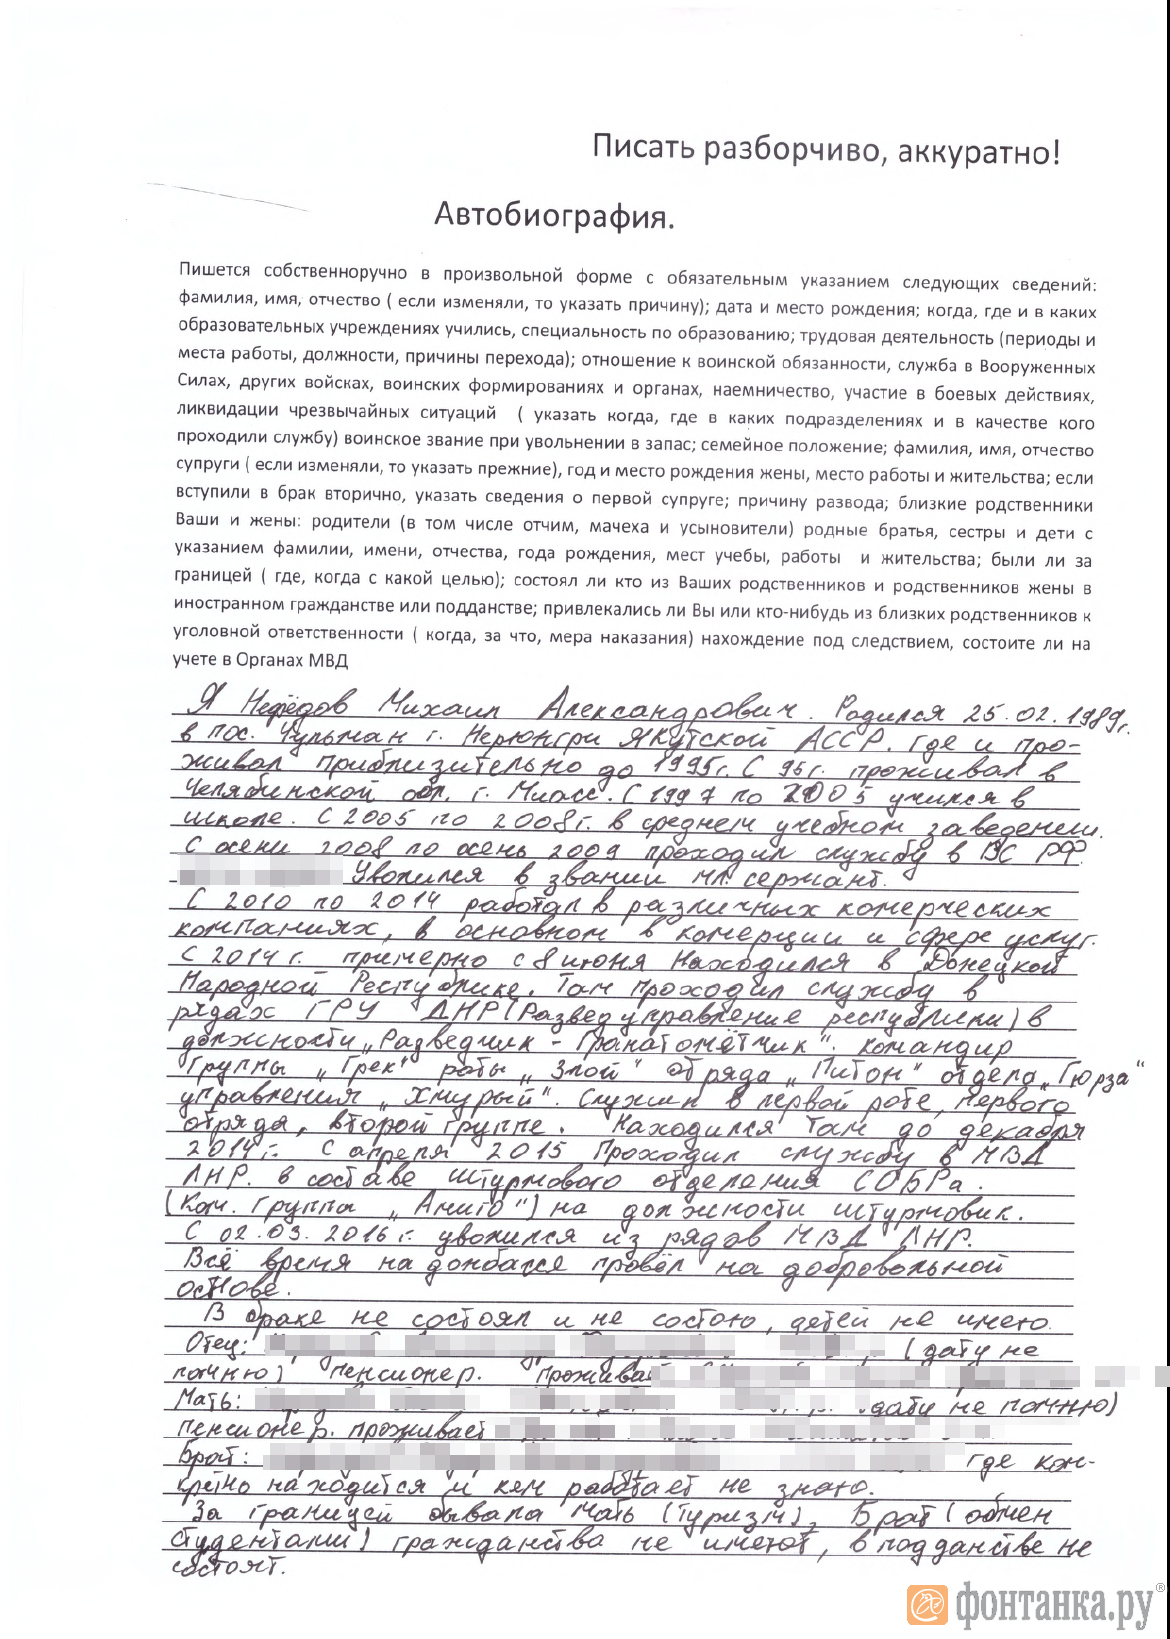 Писать разборчиво, аккуратно!
Автобиография.
Пишется собственноручно в произвольной форме с обязательным указанием следующих сведений:
фамилия, имя, отчество ( если изменяли, то указать причину); дата и место рождения; когда, где и в каких
образовательных учреждениях учились, специальность по образованию; трудовая деятельность (периоды и
места работы, должности, причины перехода); отношение к воинской обязанности, служба в Вооруженных
Силах, других войсках, воинских формированиях и органах, наемничество, участие в боевых действиях,
ликвидации чрезвычайных ситуаций ( указать когда, где в каких подразделениях и в качестве кого
проходили службу) воинское звание при увольнении в запас; семейное положение; фамилия, имя, отчество
супруги ( если изменяли, то указать прежние), год и место рождения жены, место работы и жительства; если
вступили в брак вторично, указать сведения о первой супруге; причину развода; близкие родственники
Ваши и жены: родители (в том числе отчим, мачеха и усыновители) родные братья, сестры и дети с
указанием фамилии, имени, отчества, года рождения, мест учебы, работы и жительства; были ли за
границей ( где, когда с какой целью); состоял ли кто из Ваших родственников и родственников жены в
иностранном гражданстве или подданстве; привлекались ли Вы или кто-нибудь из близких родственников к
уголовной ответственности ( когда, за что, мера наказания) нахождение под следствием, состоите ли на
учете в Органах МВД
Я Нефёдов Михаил Александрович. Родился 25.02.1989г.
в пос. Чульман г. Нерюнгри Якутской АССР. где и про-
живал приблизительно до 1995г. С 95г. проживал в
Челябинской обл. г. Миасс. С 1997 по 2005 учился в
школе. С 2005 по 2008г. в среднем учебном заведении.
С осени 2008 по осень 2009 проходил службу в ВС РФ.
Уволился в звании мл. сержант.
С 2010 по 2014 работал в различных комерческих
компаниях, в основном в комерции и сфере услуг.
С 2014г. примерно с 8 июня Находился в Донецкой
Народной Республике. Там проходил службу в
рядах ГРУ ДНР (Развед управление республики) в
должности „Разведчик - Гранатомётчик". командир
Группы „Грек" роты „Злой" отряда „Питон" отдела „Гюрза"
управления „Хмурый". Служил в первой роте, первого
отряда, второй группе. Находился там до декабря
2014г. С апреля 2015 Проходил службу в МВД
ЛНР. в составе штурмового отделения СОБРа.
(Ком. Группы „Амиго") на должности штурмовик.
С 02.03.2016г. уволился из рядов МВД ЛНР.
Всё время на донбассе провёл на добровольной
основе.
В браке не состоял и не состою, детей не имею.
Отец: (дату не
помню) Пенсионер. Проживает
Мать: дату не помню)
Пенсионер. проживает
Брат: где кон-
кретно находится и кем работает не знаю.
За границей бывала мать (туризм), Брат (обмен
студентами) гражданства не имеют, в подданстве не
состоят.
фонтанка.ру®